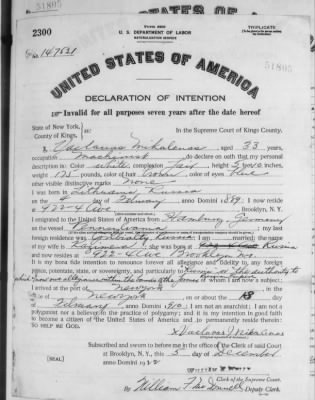 51895
Form 2203
U. S. DEPARTMENT OF LABOR
NATURALIZATION SERVICE
TRIPLICATE
2300
No. 147531
51895
UNITED STATES OF AMERICA
DECLARATION OF INTENTION
Invalid for all purposes seven years after the date hereof
State of New York,
County of Kings, ss:
In the Supreme Court of Kings County.
I, aged 33 years,
occupation Machinist, do declare on oath that my personal
description is: Color white, complexion fair, height 5 feet 10 inches,
weight 175 pounds, color of hair brown, color of eyes blue
other visible distinctive marks none
I was born in Lithuania, Russia
on the day of February, anno Domini; I now reside
at 422-4 Ave, Brooklyn, N.Y.
I emigrated to the United States of America from Hamburg, Germany
on the vessel Pennsylvania; my last
foreign residence was Russia. I am married; the name
of my wife is; she was born at Russia
and now resides at 422-4 Ave Brooklyn N.Y.
It is my bona fide intention to renounce forever all allegiance and fidelity to any foreign
prince, potentate, state, or sovereignty, and particularly to
of whom I am now a subject;
I arrived at the port of New York, in the
of New York, on or about the 18 day
of February, anno Domini; I am not an anarchist; I am not a
polygamist nor a believer in the practice of polygamy; and it is my intention in good faith
to become a citizen of the United States of America and to permanently reside therein:
SO HELP ME GOD.
Subscribed and sworn to before me in the office of the Clerk of said Court
at Brooklyn, N. Y., this 5 day of December
anno Domini 1912
[SEAL]
Clerk of the Supreme Court.
By William F. Deputy Clerk.